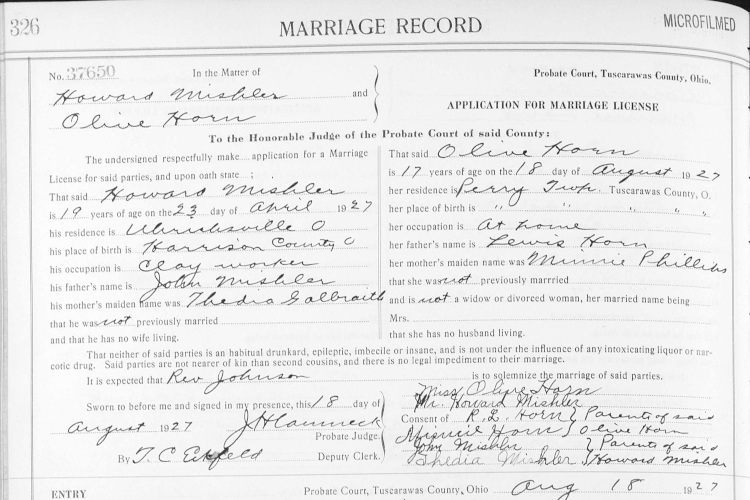 326
MARRIAGE RECORD
MICROFILMED
No. 37650
In the Matter of
Howard Mishler
and
Olive Horn
Probate Court, Tuscarawas County, Ohio.
APPLICATION FOR MARRIAGE LICENSE
To the Honorable Judge of the Probate Court of said County:
The undersigned respectfully make application for a Marriage
License for said parties, and upon oath state :
That said Howard Mishler
is 19 years of age on the 23 day of April 1927
his residence is Uhrichsville O
his place of birth is Harrison County, O
his occupation is Clay worker
his father's name is John Mishler
his mother's maiden name was Thedia Galbraith
that he was not previously married
and that he has no wife living.
That said Olive Horn
is 17 years of age on the 18 day of August 1927
her residence is Perry Twp. Tuscarawas County, O.
her place of birth is " " " "
her occupation is At home
her father's name is Lewis Horn
her mother's maiden name was Minnie Phillips
that she was not previously marrried
and is not a widow or divorced woman, her married name being
Mrs.
that she has no husband living.
That neither of said parties is an habitual drunkard, epileptic, imbecile or insane, and is not under the influence of any intoxicating liquor or nar-
cotic drug. Said parties are not nearer of kin than second cousins, and there is no legal impediment to their marriage.
It is expected that Rev Johnson is to solemnize the marriage of said parties.
Sworn to before me and signed in my presence, this 18 day of
August 1927
J H Lamneck
Probate Judge.
By T. C. Deputy Clerk.
Miss Olive Horn
Mr. Howard Mishler
Consent of R. L. Horn } Parents of said
Minnie Horn } Olive Horn
John Mishler } Parents of said
Thedia Mishler } Howard Mishler
ENTRY
Probate Court, Tuscarawas County, Ohio Aug 18 1927